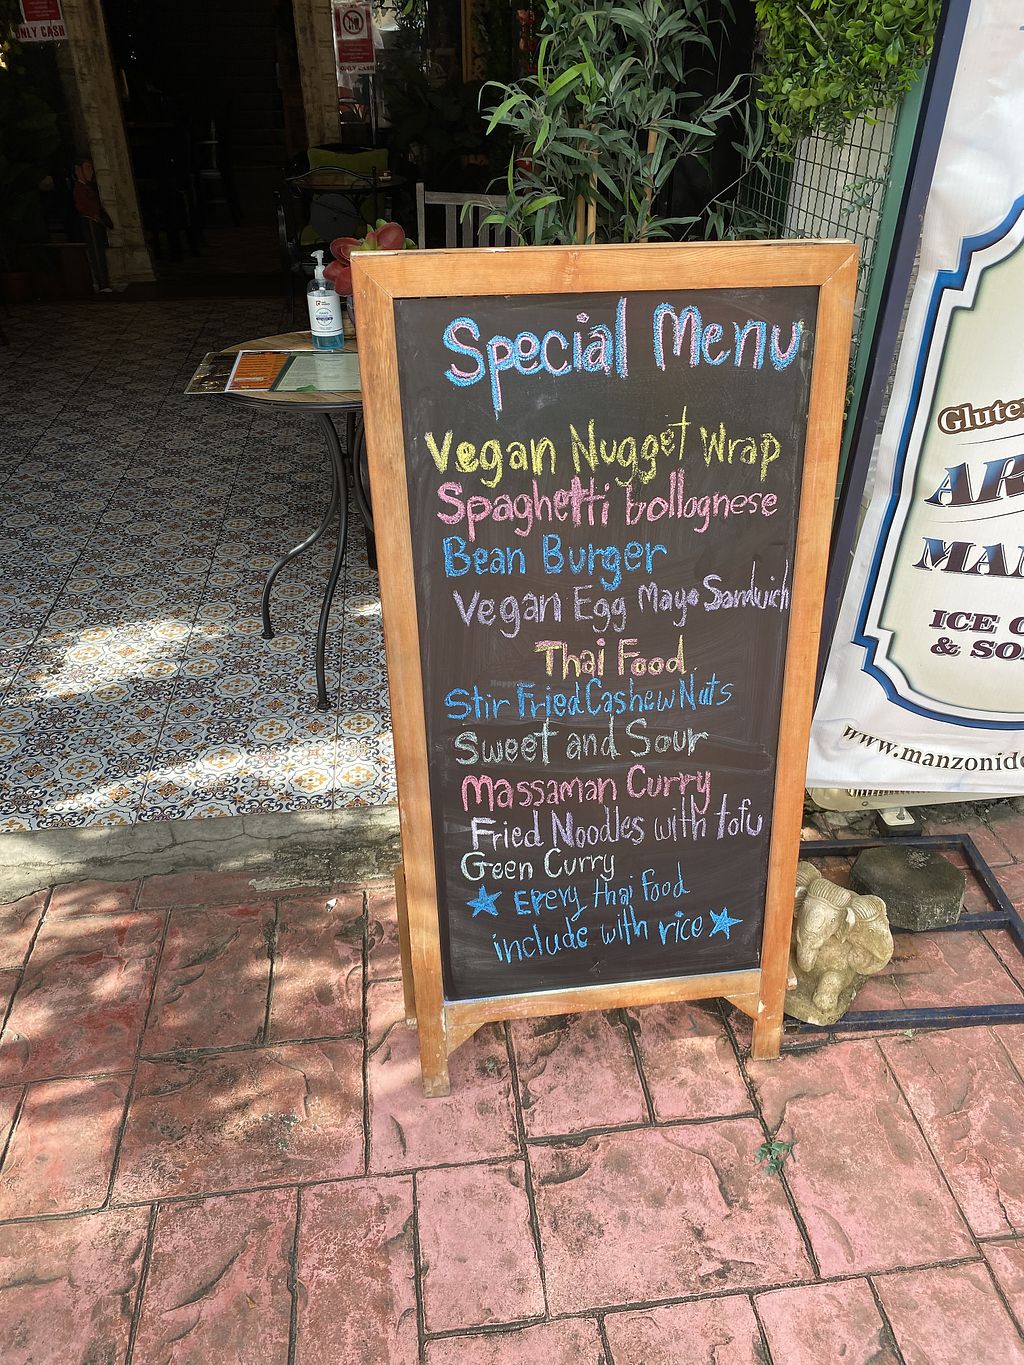 ONLY CASH
ONLY CASH
Special Menu
Vegan Nugget Wrap
Spaghetti bollognese
Bean Burger
Vegan Egg Mayo Sandwich
Thai Food
Stir Fried Cashew Nuts
Sweet and Sour
Massaman Curry
Fried Noodles with tofu
Geen Curry
Erevy thai food
include with rice
Glute
AR
MA
ICE C
& SO
www.manzonide